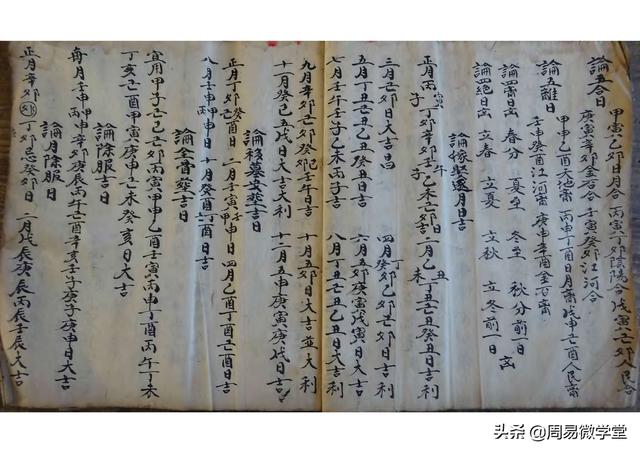 論五合日
甲寅乙卯日月合 丙寅丁卯陰陽合 戊寅己卯人民合
庚寅辛卯金石合 壬寅癸卯江河合
論五離日
甲申乙酉天地离 丙申丁酉日月离 戊申己酉人民离
壬申癸酉江河离 庚申辛酉金石离
論四离日 春分 夏至 冬至 秋分前一日
論四絕日 立春 立夏 立秋 立冬前一日
月日吉
正月丙子
三月己卯日大吉昌
四月乙卯己卯日吉利
五月丁丑己丑乙丑癸丑日吉
六月五卯庚寅戊寅日大吉
七月壬午壬子乙未丙子吉
八月丁丑己丑乙丑日大吉利
九月辛卯己卯癸卯壬午日吉
十月五卯日大吉並大利
十一月癸巳五戌日大吉大利
十二月五申庚寅庚戌日吉
吉日
正月丁卯癸酉日 二月壬寅甲申日 四月乙酉丁酉己酉日吉
八月壬申甲申日 十月癸酉丁酉日吉
論全章塟吉日
宜用甲子己巳乙卯丙寅甲申乙酉壬寅丙申丁酉丙午丁未
丁亥己酉甲寅庚申己未癸亥日大吉
論除服吉日
每月壬申甲申辛卯庚辰丙午己酉辛亥壬子庚子庚申日大吉
論月除服日
正月辛卯 丁卯忌癸卯日 二月戊辰庚辰丙辰壬辰大吉
头条 @周易微学堂